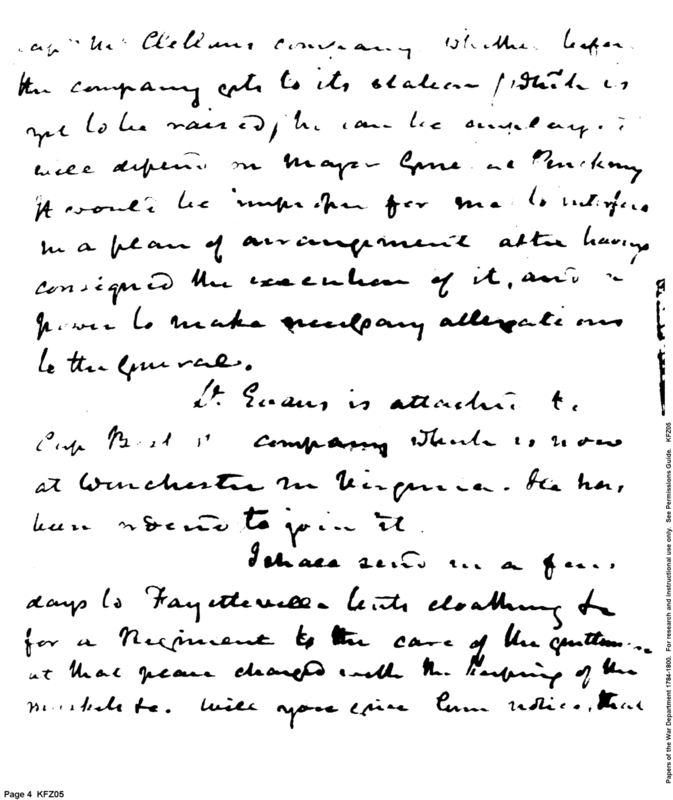 Cap.n Mc Clellans company. Whether before
the company gets to its station (which is
yet to be raised) he can be employed
will depend on Major General Pinckney
It would be improper for me to interfere
in a plan of arrangement after having
consigned the execution of it, and a
power to make necessary alterations
to the General.
Lt. Evans is attached to
Cap company which is now
at Winchester in Virginia. He has
been ordered to join it
I shall send in a few
days to Fayetteville tents cloathing &c
for a Regiment to the care of the gentleman
at that place charged with the keeping of the
muskets &c. Will you give him notice, that
Page 4 KFZ05
Papers of the War Department 1784-1800. For research and instructional use only. See Permissions Guide. KFZ05